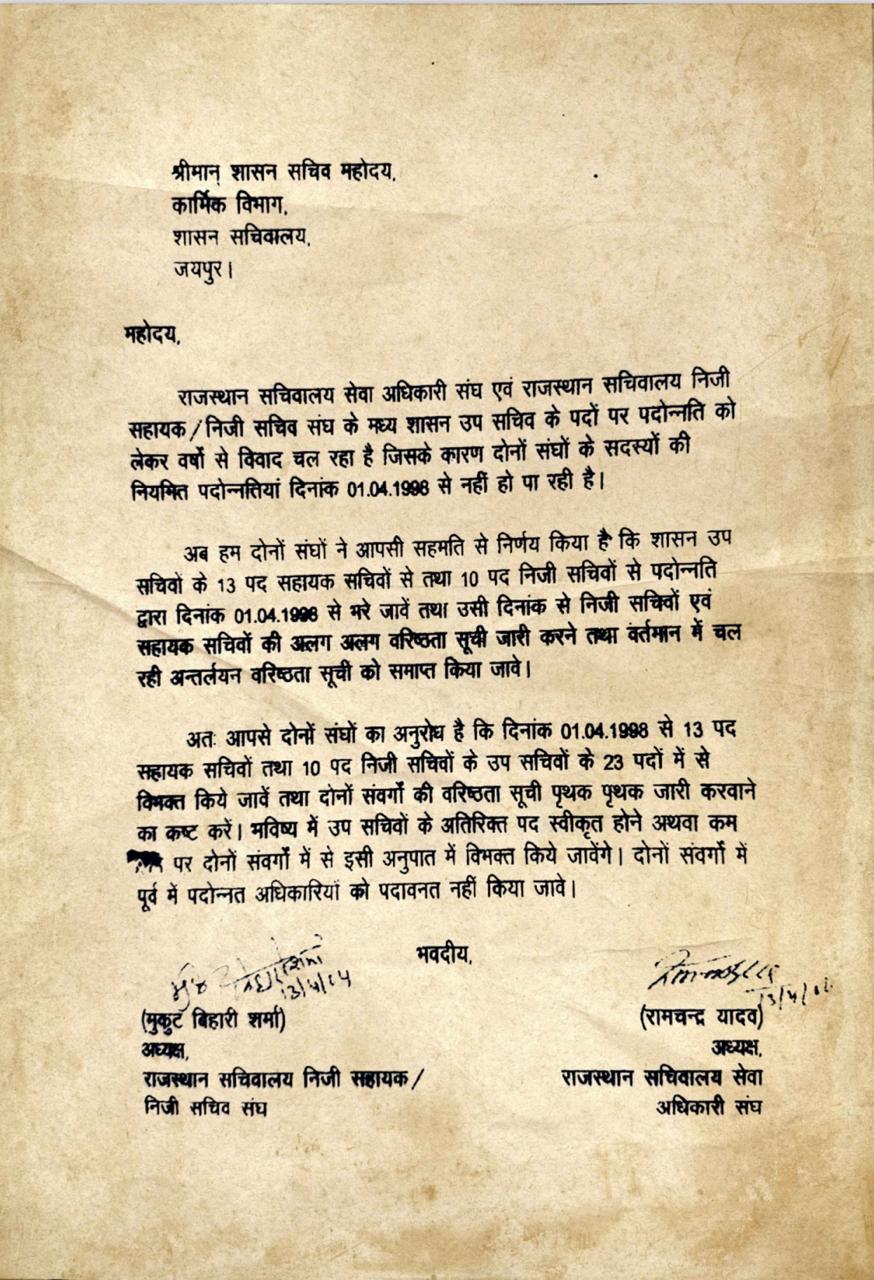 श्रीमान् शासन सचिव महोदय,
कार्मिक विभाग,
शासन सचिवालय,
जयपुर।
महोदय,
राजस्थान सचिवालय सेवा अधिकारी संघ एवं राजस्थान सचिवालय निजी
सहायक/निजी सचिव संघ के मध्य शासन उप सचिव के पदों पर पदोन्नति को
लेकर वर्षो से विवाद चल रहा है जिसके कारण दोनों संघों के सदस्यों की
नियमित पदोन्नतियां दिनांक 01.04.1998 से नहीं हो पा रही है।
अब हम दोनों संघों ने आपसी सहमति से निर्णय किया है कि शासन उप
सचिवों के 13 पद सहायक सचिवों से तथा 10 पद निजी सचिवों से पदोन्नति
द्वारा दिनांक 01.04.1998 से भरे जावें तथा उसी दिनांक से निजी सचिवों एवं
सहायक सचिवों की अलग अलग वरिष्ठता सूची जारी करने तथा वर्तमान में चल
रही अन्तर्लयन वरिष्ठता सूची को समाप्त किया जावे।
अतः आपसे दोनों संघों का अनुरोध है कि दिनांक 01.04.1998 से 13 पद
सहायक सचिवों तथा 10 पद निजी सचिवों के उप सचिवों के 23 पदों में से
विभक्त किये जावें तथा दोनों संवर्गो की वरिष्ठता सूची पृथक पृथक जारी करवाने
का कष्ट करें। भविष्य में उप सचिवों के अतिरिक्त पद स्वीकृत होने अथवा कम
पर दोनों संवर्गो में से इसी अनुपात में विभक्त किये जावेंगे। दोनों संवर्गो में
पूर्व में पदोन्नत अधिकारियों को पदावनत नहीं किया जावे।
भवदीय,
13/4/04
(मुकुट बिहारी शर्मा)
अध्यक्ष,
राजस्थान सचिवालय निजी सहायक/
निजी सचिव संघ
(रामचन्द्र यादव)
अध्यक्ष,
राजस्थान सचिवालय सेवा
अधिकारी संघ